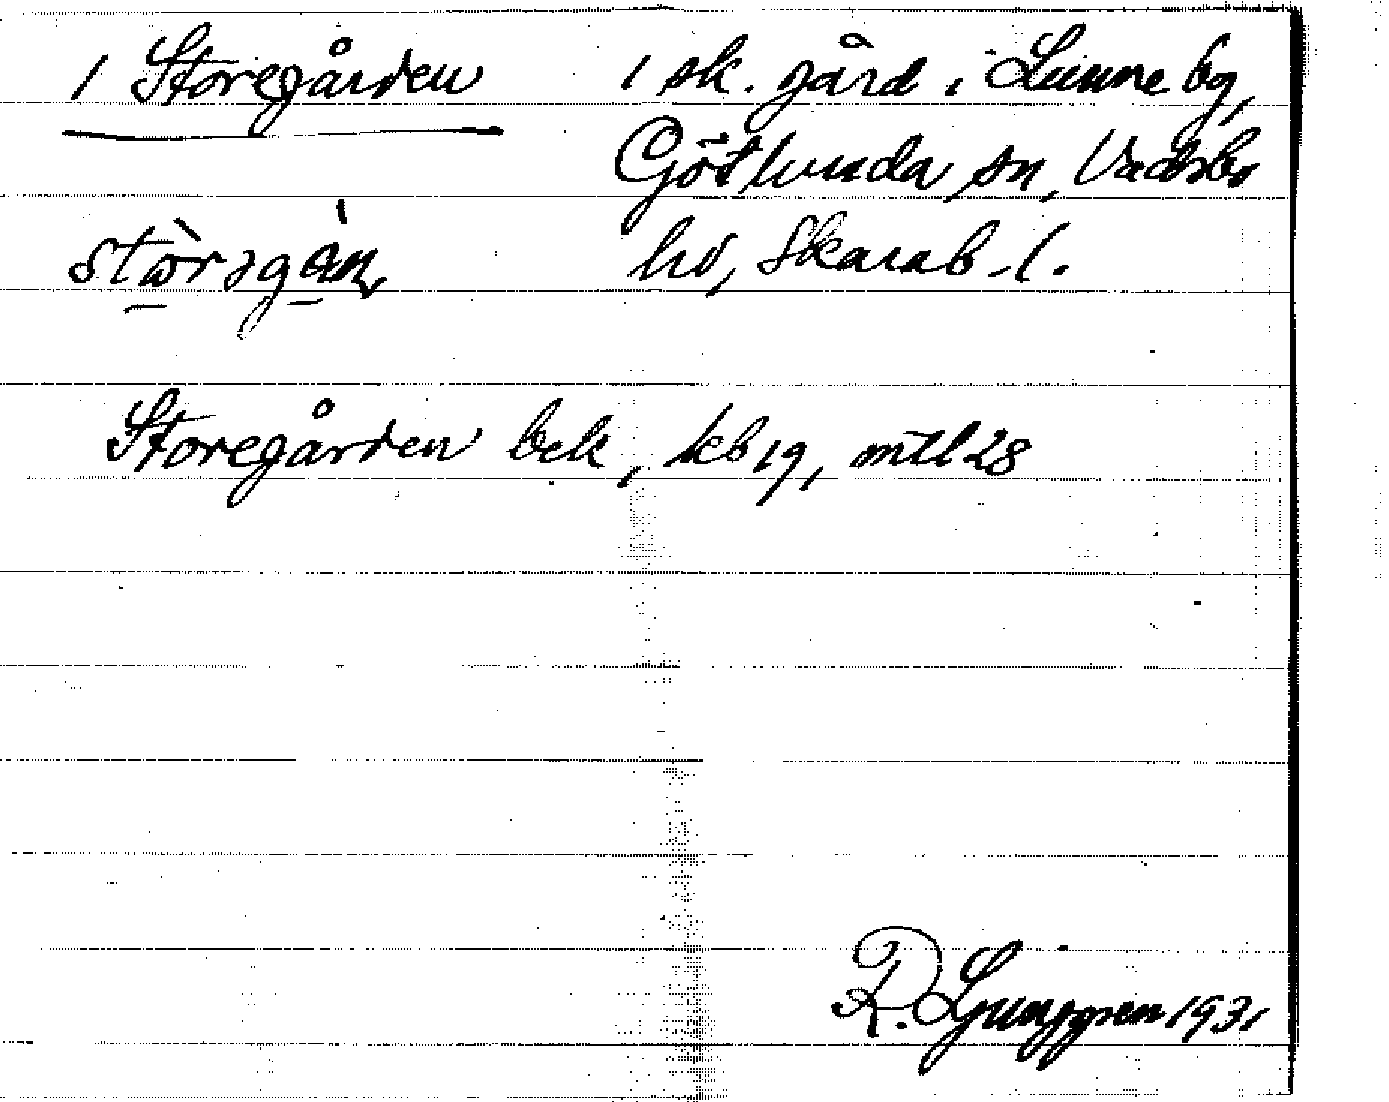 1 Storegården 1 sk. gård i Lunne by,
Götlunda sn, Vadsbo
stòrǝgán, hd, Skarab. l.
Storegården bek, kb 19, mtl 28
R. Ljunggren 1931